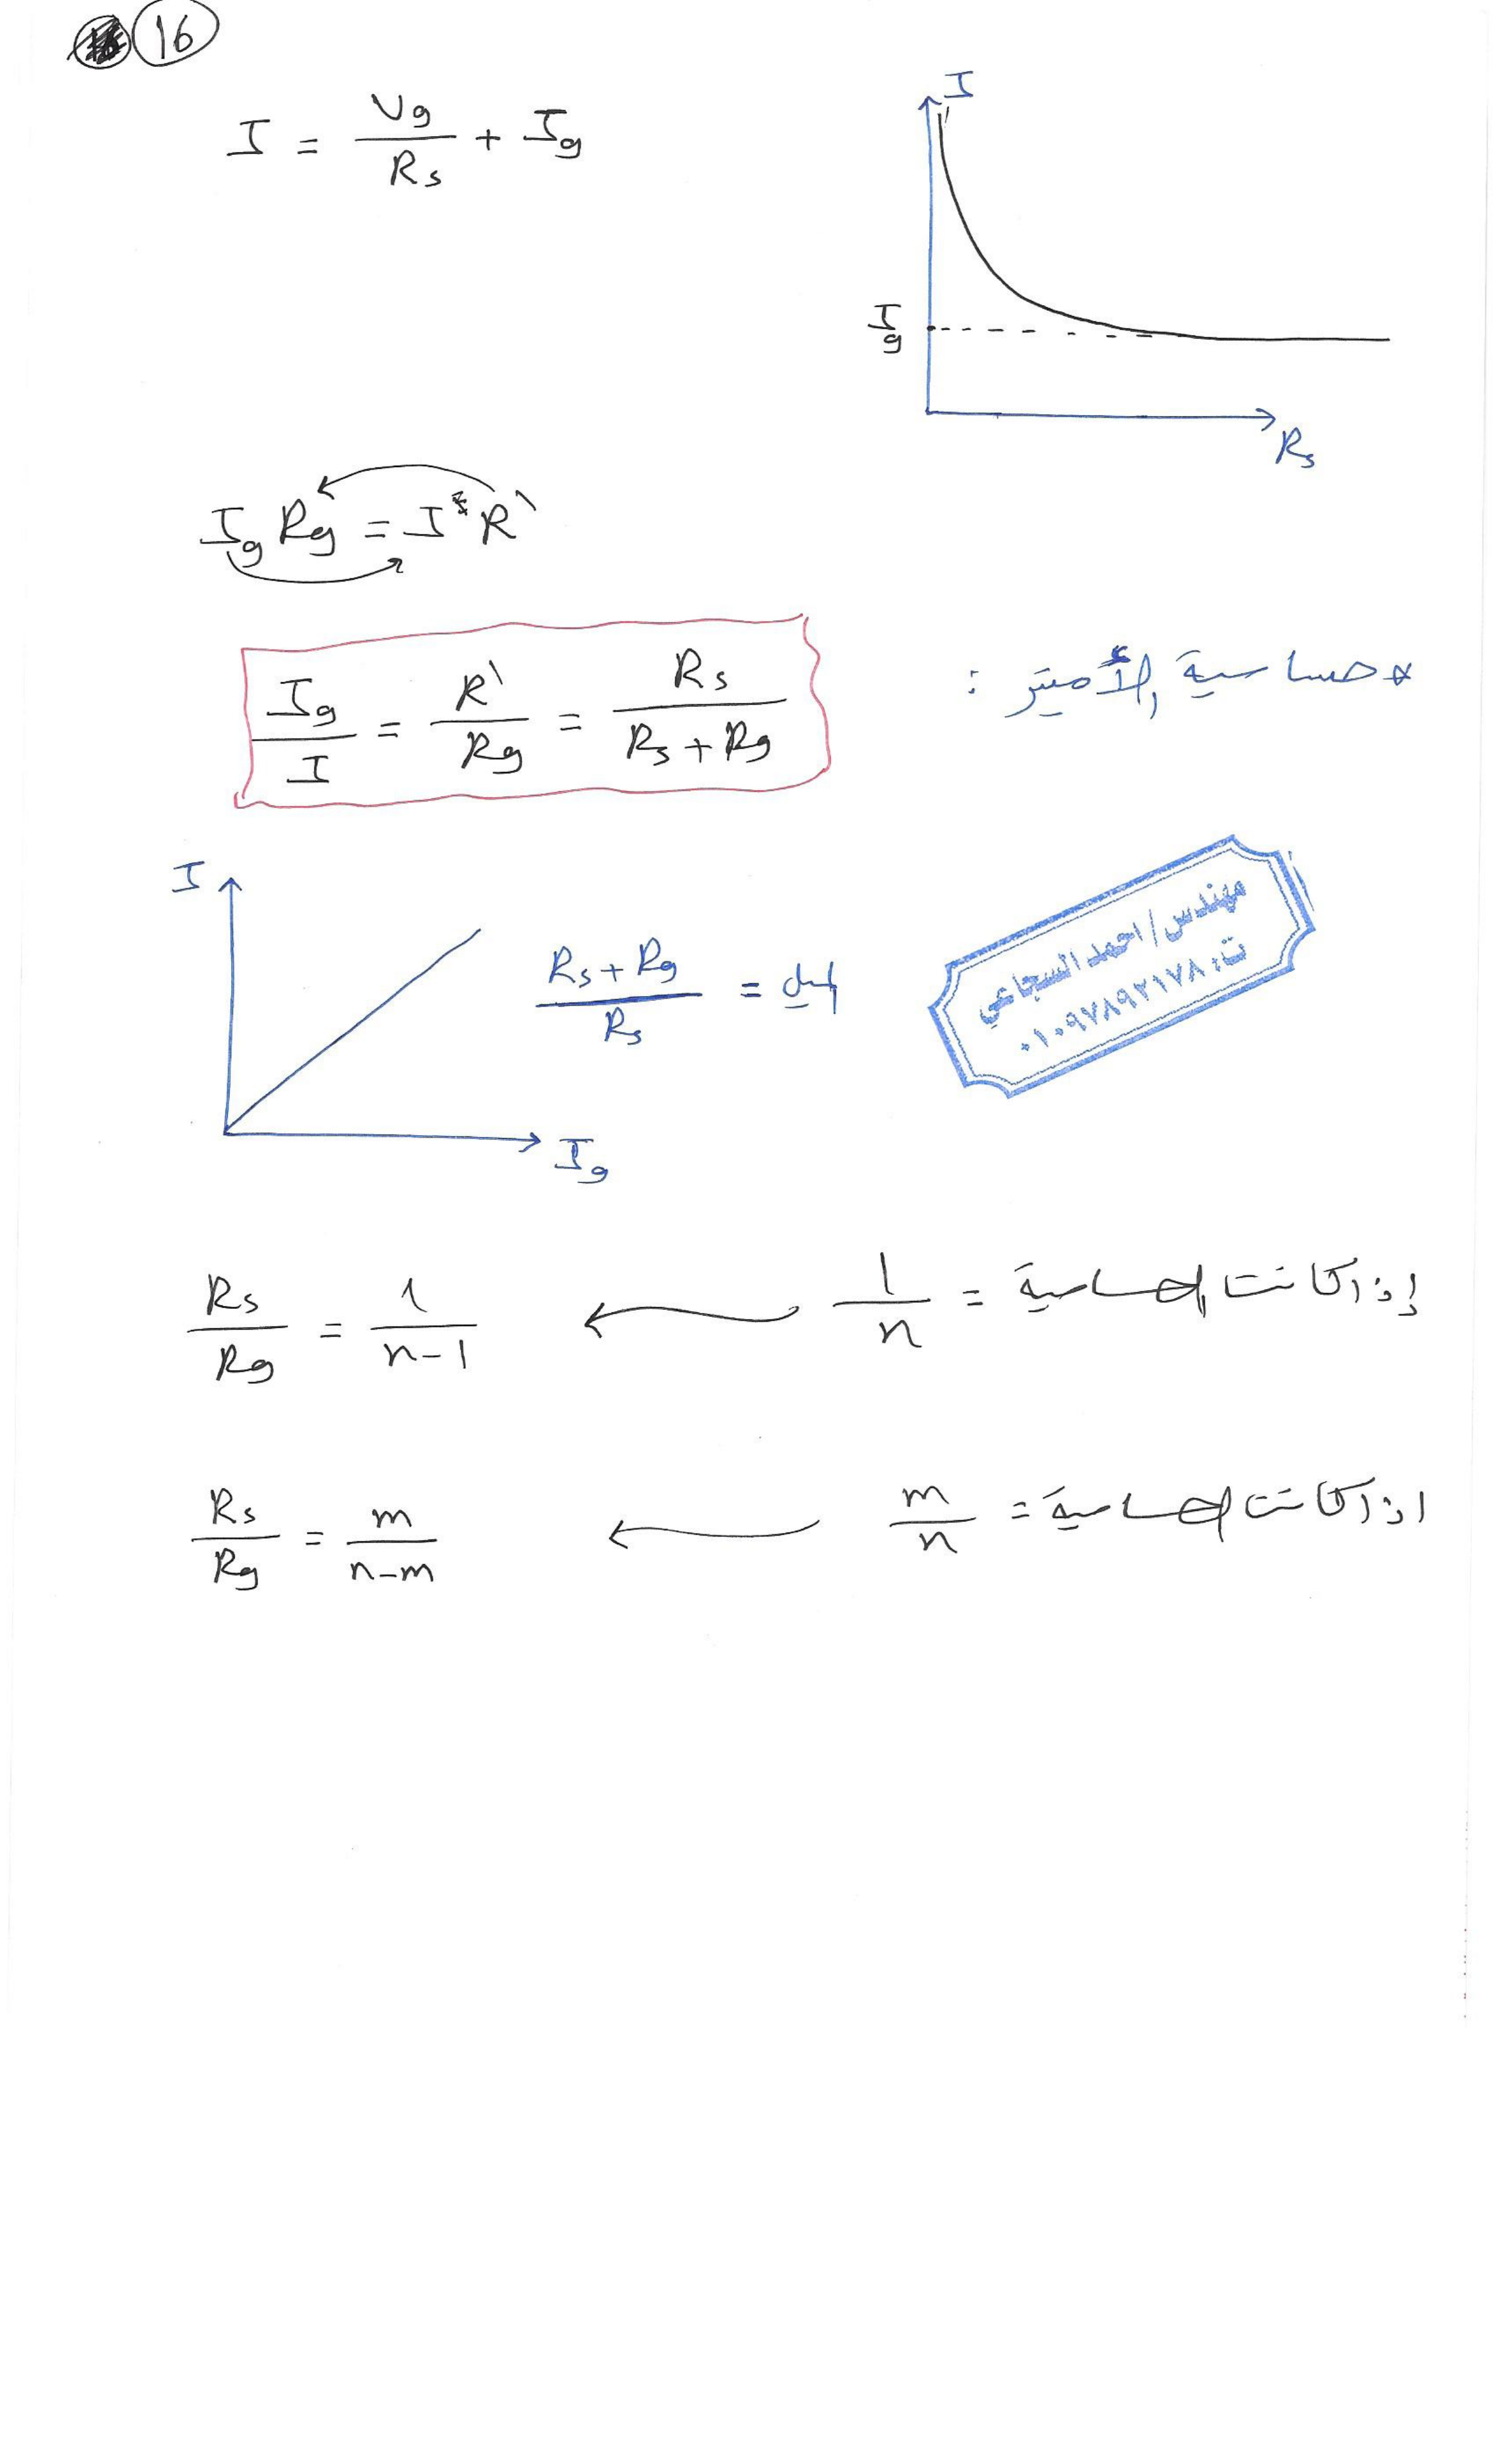 16
I = Vg / Rs + Ig
I
Ig
Rs
Ig Rg = I * R`
* حساسية الأميتر :
Ig / I = R` / Rg = Rs / (Rs + Rg)
I
Ig
الميل = (Rs + Rg) / Rs
مهندس / احمد السجاعي
ت : ٠١٠٩٧٨٩٢١٧٨
إذا كانت الحساسية = 1 / n ← Rs / Rg = 1 / (n-1)
اذا كانت الحساسية = m / n ← Rs / Rg = m / (n-m)